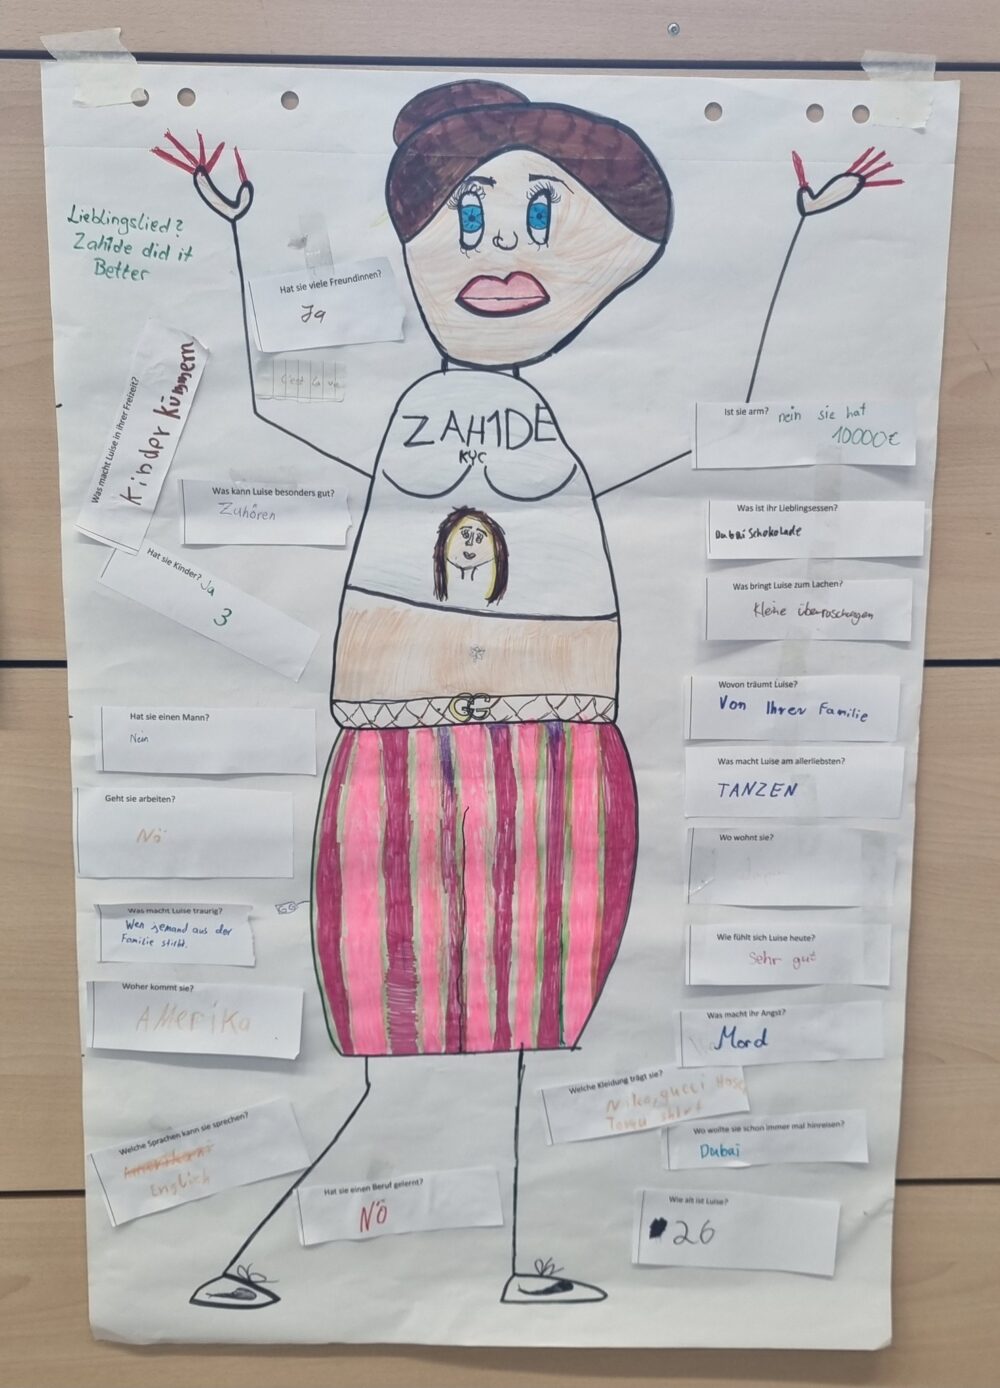 Lieblingslied?
Zah1de did it
Better
Hat sie viele Freundinnen?
Ja
C'est la vie
Was macht Luise in ihrer Freizeit?
Kinder kümmern
Was kann Luise besonders gut?
Zuhören
Hat sie Kinder? Ja
3
Hat sie einen Mann?
Nein
Geht sie arbeiten?
Nö
Was macht Luise traurig?
Wen jemand aus der
Familie stirbt.
GG
Woher kommt sie?
AMerika
Welche Sprachen kann sie sprechen?
Englich
Hat sie einen Beruf gelernt?
NÖ
ZAH1DE
KYC
GG
Ist sie arm? nein sie hat
10000€
Was ist ihr Lieblingsessen?
Dubai Schokolade
Was bringt Luise zum Lachen?
Kleine überraschungen
Wovon träumt Luise?
Von Ihrer Familie
Was macht Luise am allerliebsten?
TANZEN
Wo wohnt sie?
Wie fühlt sich Luise heute?
Sehr gut
Was macht ihr Angst?
Mord
Welche Kleidung trägt sie?
Nike, gucci Hose,
shirt
Wo wollte sie schon immer mal hinreisen?
Dubai
Wie alt ist Luise?
26